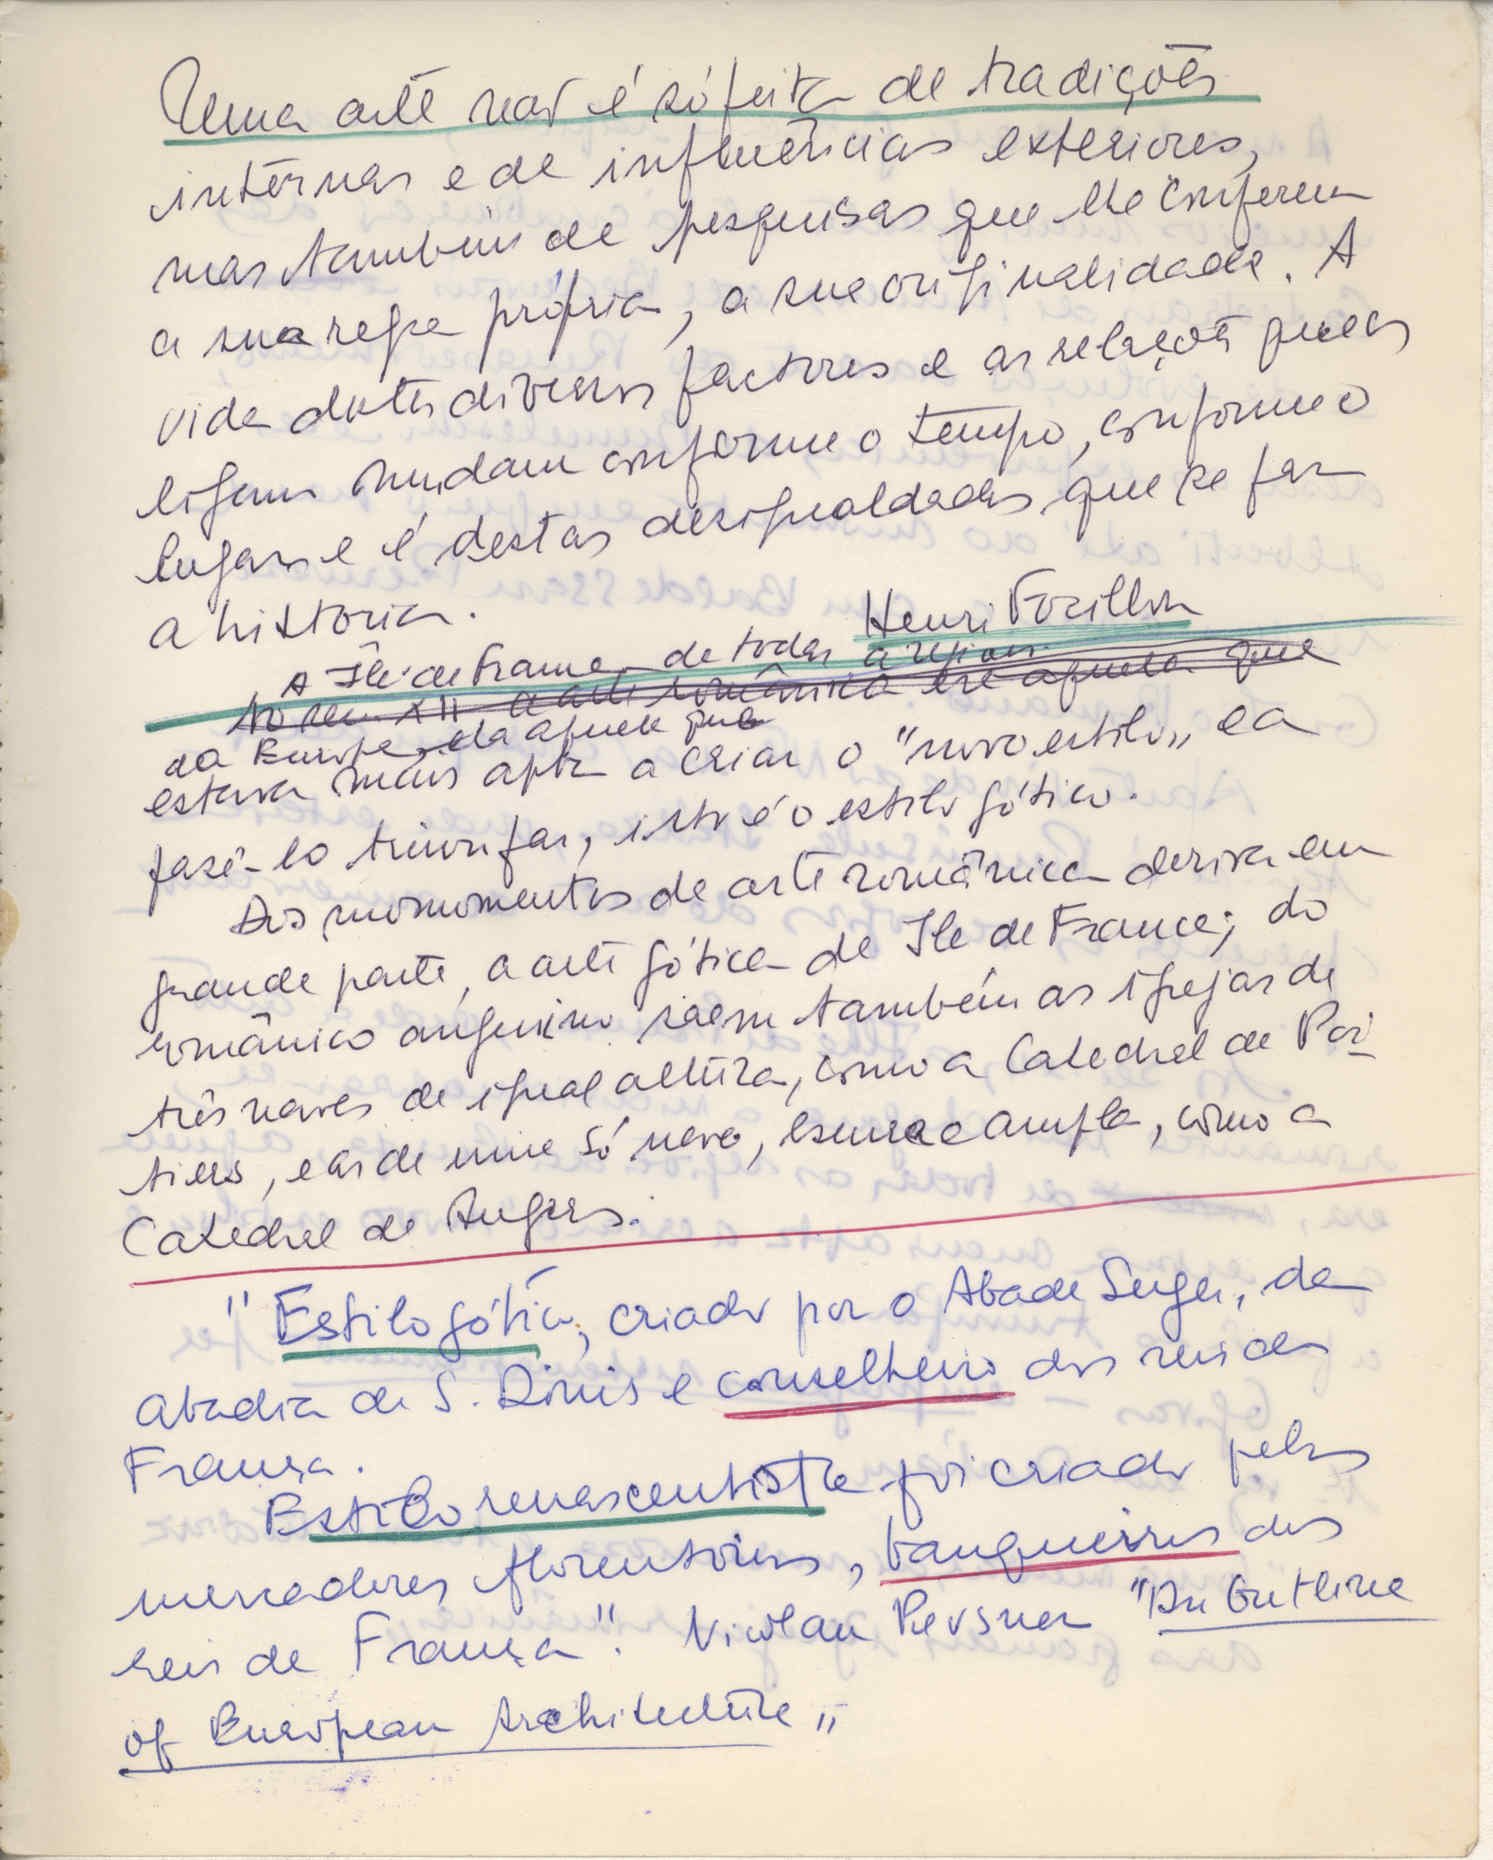 Uma arte não é só feita de tradições
internas e de influências exteriores,
mas também de pesquisas que lhe conferem
a sua regra própria, a sua originalidade. A
vida destes diversos factores e as relações que os
ligam mudam conforme o tempo, conforme o
lugar e é destas desigualdades que se faz
a história.
Henri Focillon
A Île de France, de todas a regiões
No sec XII a arte românica era aquela que
da Europa, era aquela que
estava mais apta a criar o "novo estilo" e a
fazê-lo triunfar, isto é o estilo gótico.
Dos monumentos de arte românica deriva em
grande parte, a arte gótica de Ile de France; do
românico angevino saem também as igrejas de
três naves de igual altura, como a Catedral de Poi-
tiers, e as de uma só nave, escura e ampla, como a
Catedral de Angers.
"Estilo gótico, criado por o Abade Suger, da
abadia de S. Dinis e conselheiro dos reis de
França.
Estilo renascentista foi criado pelos
mercadores florentinos, banqueiros dos
reis de França". Nicolau Pevsner "An Outline
of European Architecture"